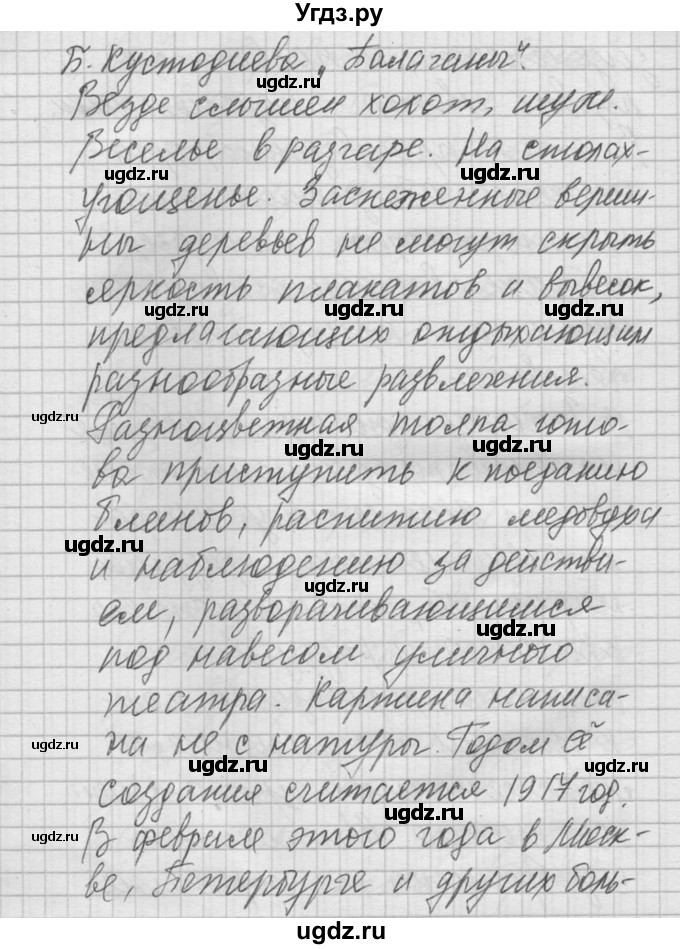 Угдз.ру
Б. Кустодиева „Балаганы“.
ugdz.ru
Везде слышен хохот, шум.
Веселье в разгаре. На столах-
ugdz.ru ugdz.ru
угощенье. Заснеженные верши-
ны деревьев не могут скрыть
ugdz.ru
яркость плакатов и вывесок,
ugdz.ru
предлагающих отдыхающим
разнообразные развлечения.
ugdz.ru ugdz.ru
Разноцветная толпа гото-
ugdz.ru ugdz.ru
ва приступить к поеданию
блинов, распитию медовухи
ugdz.ru
и наблюдению за действи-
ugdz.ru
ем, разворачивающимся
ugdz.ru
под навесом уличного
театра. Картина написа-
ugdz.ru
на не с натуры. Годом её
ugdz.ru ugdz.ru
создания считается 1917 год.
ugdz.ru
В феврале этого года в Моск-
ugdz.ru
ве, Петербурге и других боль-
ugdz.ru ugdz.ru
ugdz.ru